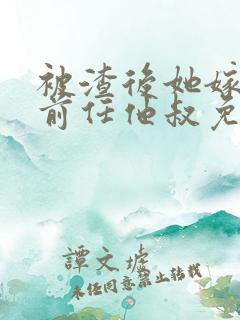 被渣后她嫁
前任他叔免
譚文墟
未经同意禁止转载